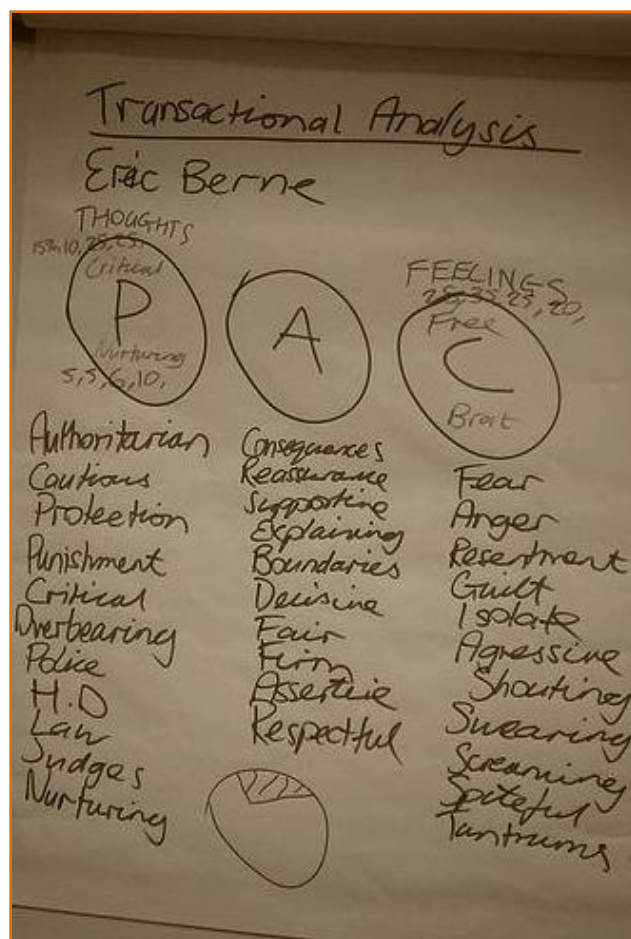 Transactional Analysis
Eric Berne
THOUGHTS
Critical
P
Nurturing
5,5,6,10,
A
FEELINGS
Free
C
Brat
Authoritarian
Cautious
Protection
Punishment
Critical
Overbearing
Police
H.D
Law
Judges
Nurturing
Consequances
Reassurance
Supportive
Explaining
Boundaries
Decisive
Fair
Firm
Assertive
Respectful
Fear
Anger
Resentment
Guilt
Isolate
Agressive
Shouting
Swearing
Screaming
Spiteful
Tantrums